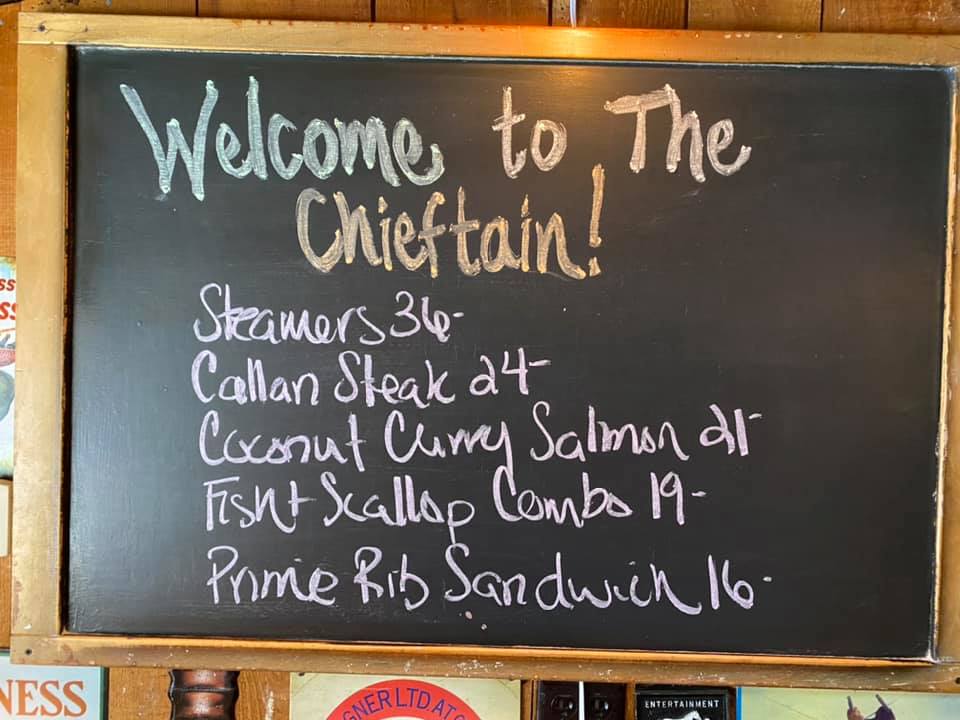 Welcome to The
Chieftain!
Steamers 36-
Callan Steak 24-
Coconut Curry Salmon 21-
Fish + Scallop Combo 19-
Prime Rib Sandwich 16-
SS
SS
NESS
GNER LTD. AT
ENTERTAINMENT